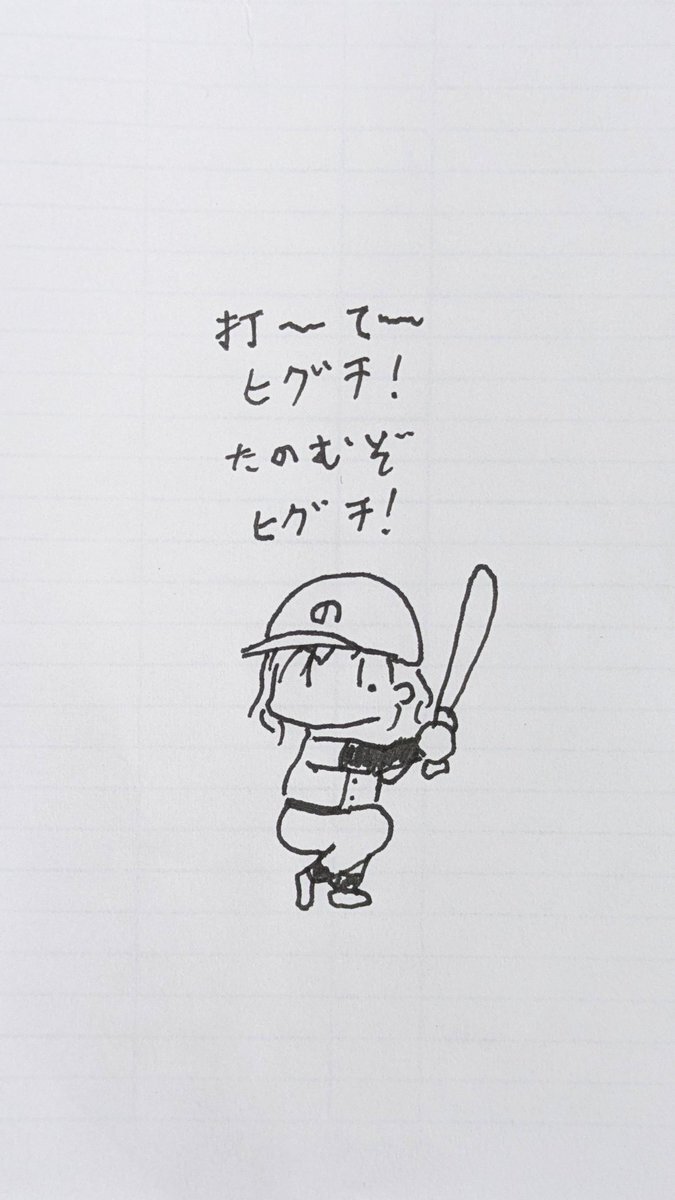 打〜て〜
ヒグチ!
たのむぞ
ヒグチ!
の